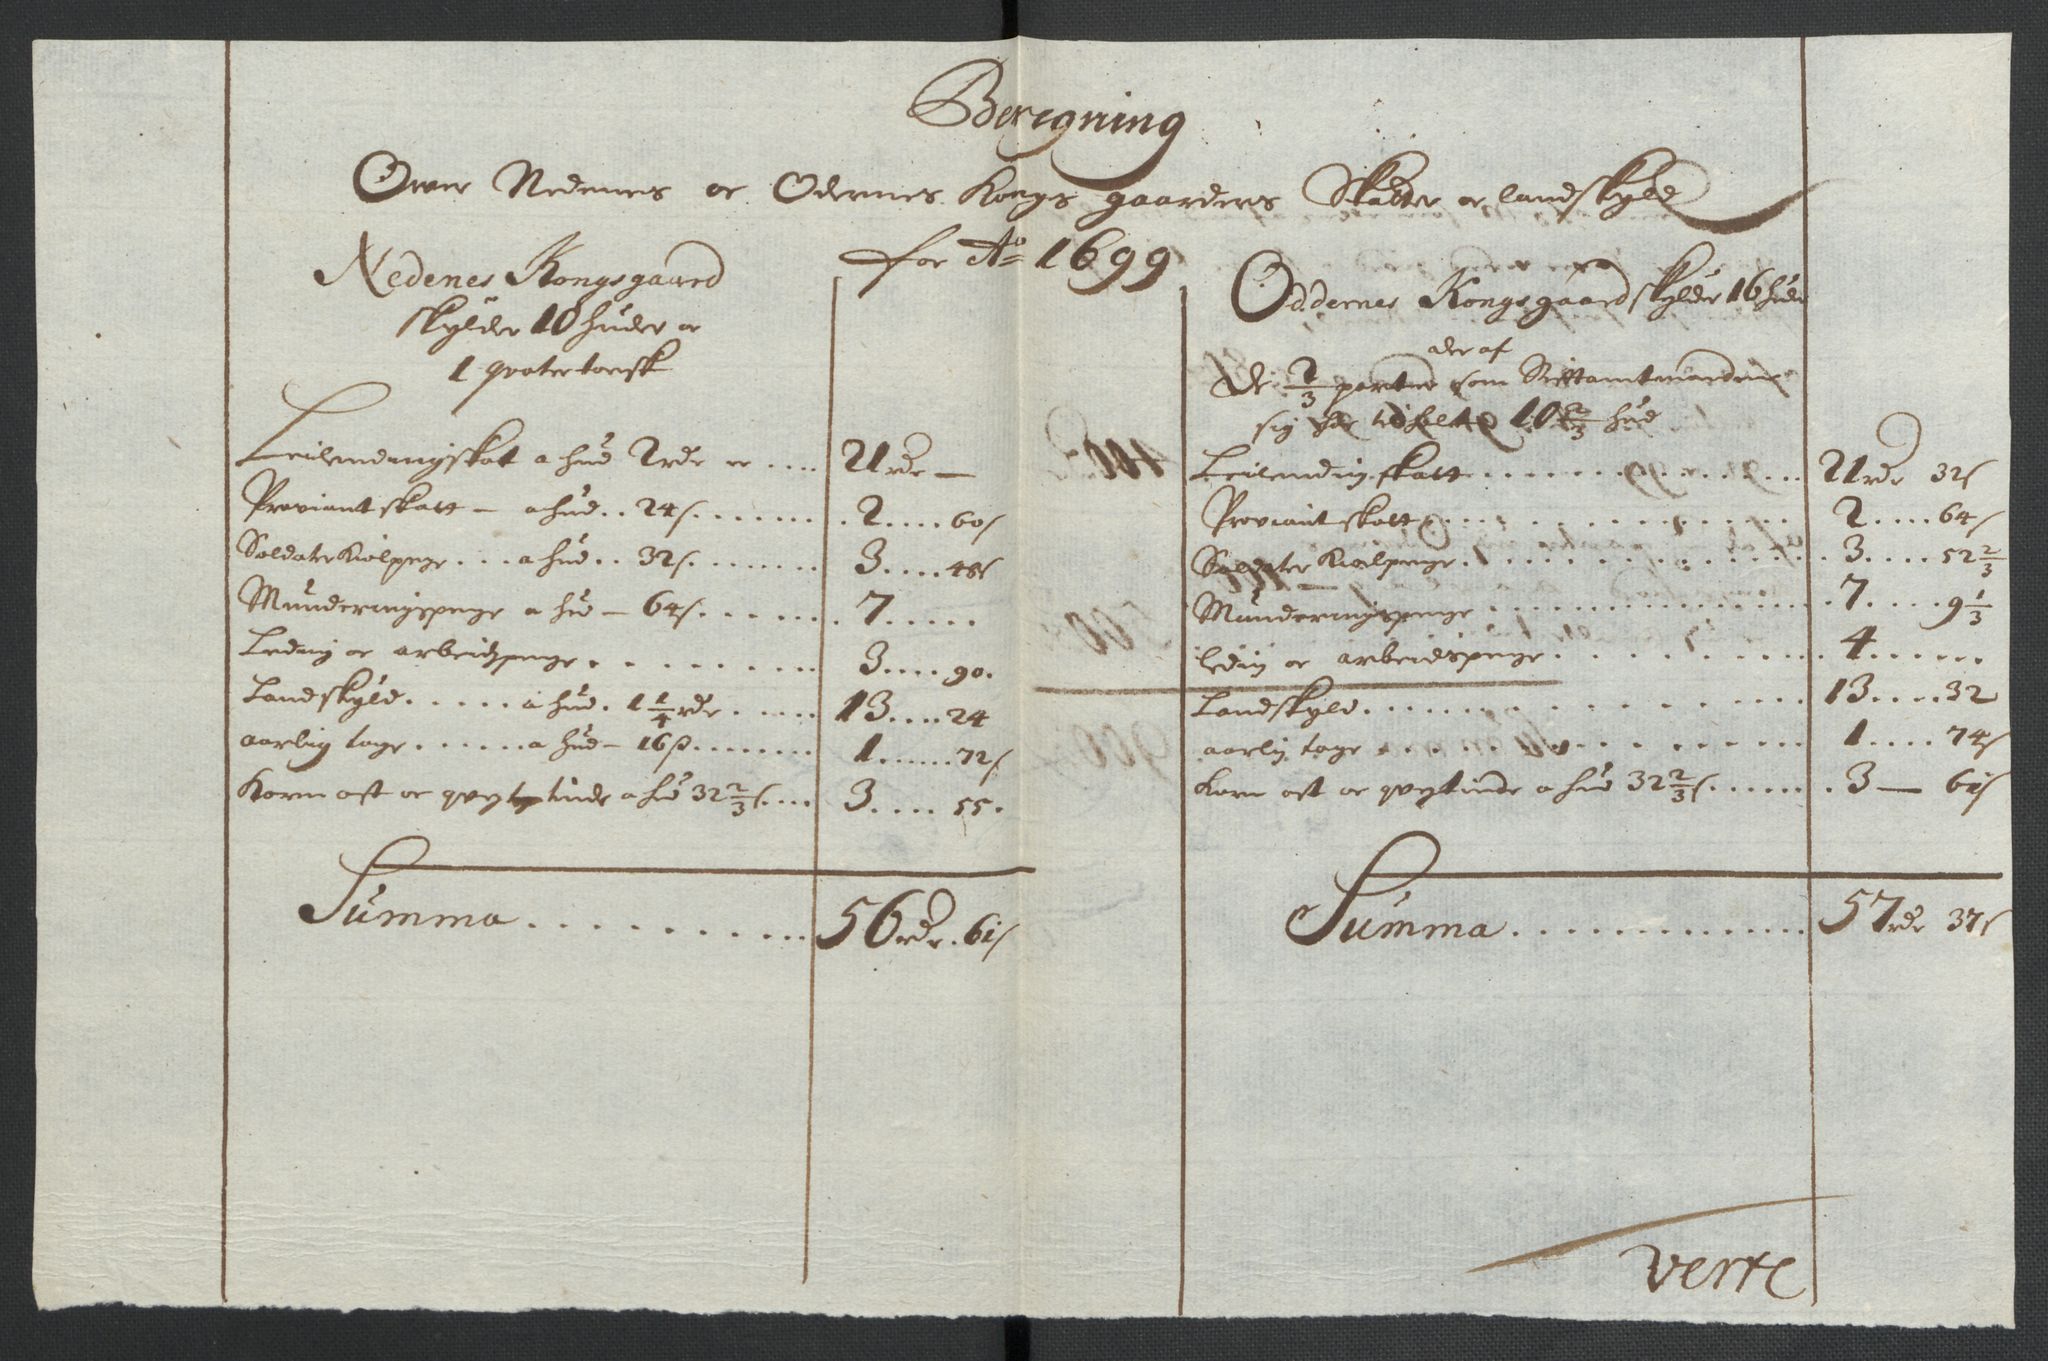 Beregning
Ower Nedenes oc Odernes Kongs gaarders Skatter oc landskyld
for Ao 1699
Nedenes Kongsgaard
skylder 10 huder oc
1 qvater torsk
Leilendingskat a hud 2 rdr er .... 21 rdr —
Proviant skatt — a hud .. 24 s ....... 2 .... 60 s
Soldate Kiolpenge ... a hud .. 32 s ....... 3 .... 48 s
Munderingspenge a hud — 64 s ...... 7 .....
Leding oc arbeidspenge ......... 3 .... 90.
Landskyld ..... a hud. 1 1/4 rdr ..... 13 .... 24
aarlig tage ...... a hud — 16 s ....... 1 ...... 72 s
Korn ost oc qvegtinde a hud 32 2/3 s .... 3 .... 55.
Summa .......... 56 rdr. 61 s
Oddernes Kongsgaard skylder 16 huder
der af
de 2/3 parter som Stiftamtmanden
sig har beholt 10 2/3 hud
Leilending skatt ............ 21 rdr 32 s
Proviant skatt ............ 2 .... 64 s
Soldater Kiolpenge ............ 3 .... 52 2/3
Munderingspenge ............ 7 .... 9 1/3
leding oc arbeidspenge .......... 4 ......
Landskyld ............ 13 .... 32
aarlig tage ............ 1 .... 74 s
Korn ost oc qvegtinde a hud 32 2/3 s ...... 3 — 61 s
Summa ............ 57 rdr 37 s
verte